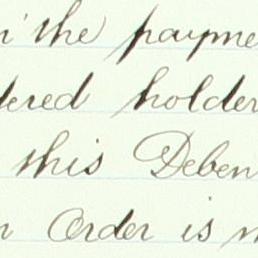 the payme
dered holder
this Deben
Order is